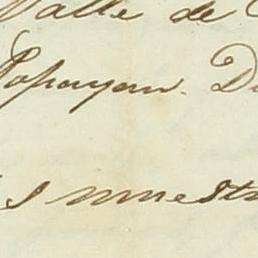 Valle de
Popayan. D
s nuestr